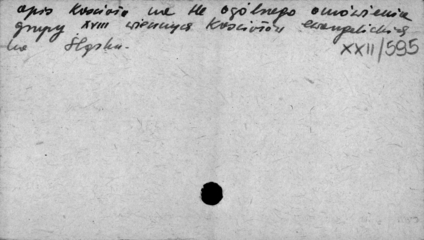 opis kościoła na tle ogólnego omówienia
grupy XVIII wiecznych kościołów ewangelickich
na Śląsku.
XXII/595